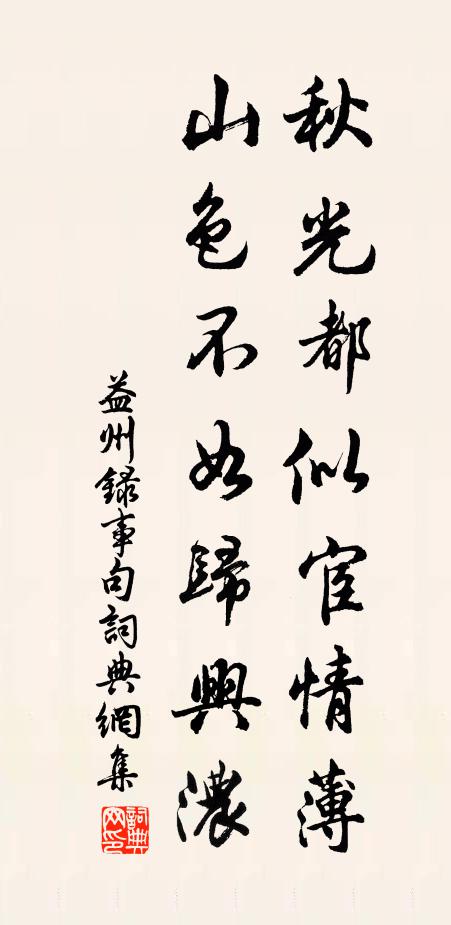 秋光都似宦情薄
山色不如歸興濃
益州錄事句詞典網集
詞典
网印